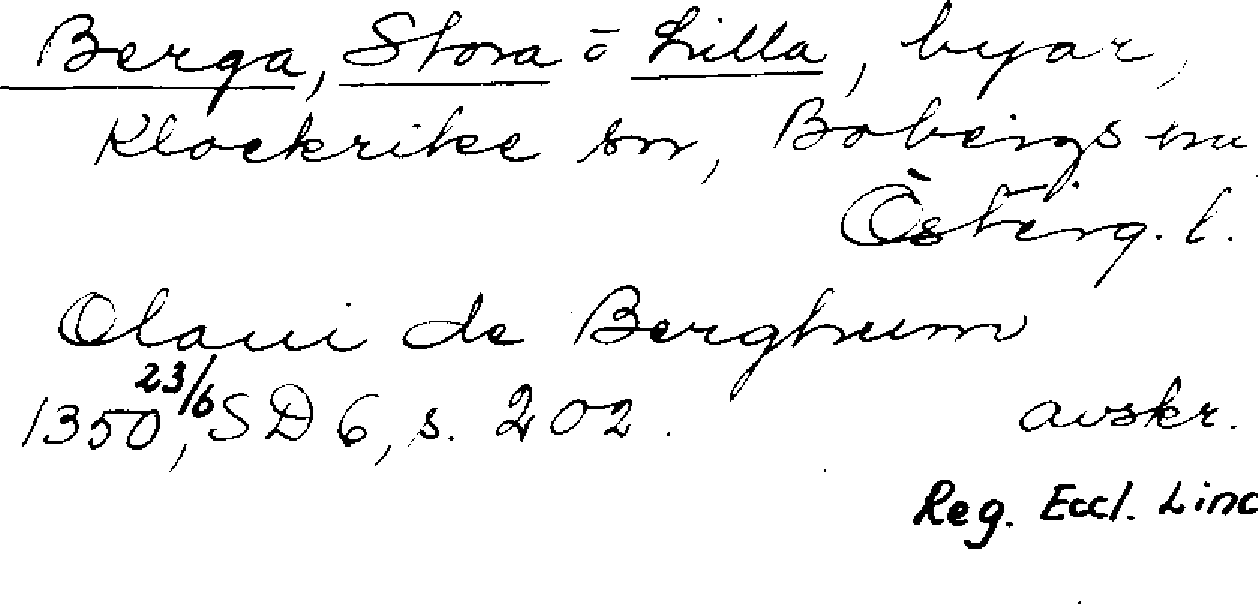 Berga, Stora o Lilla, byar,
Klockrike sn, Bobergs hu
Österg. l.
Olaui de Berghum
1350 23/6, SD 6, s. 202. avskr.
Reg. Eccl. Linc